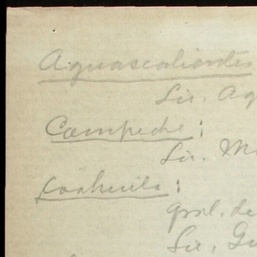 Aguascalientes
Lic. Ag
Campeche:
Lic. M
Coahuila:
Gral. de
Lic. Gu